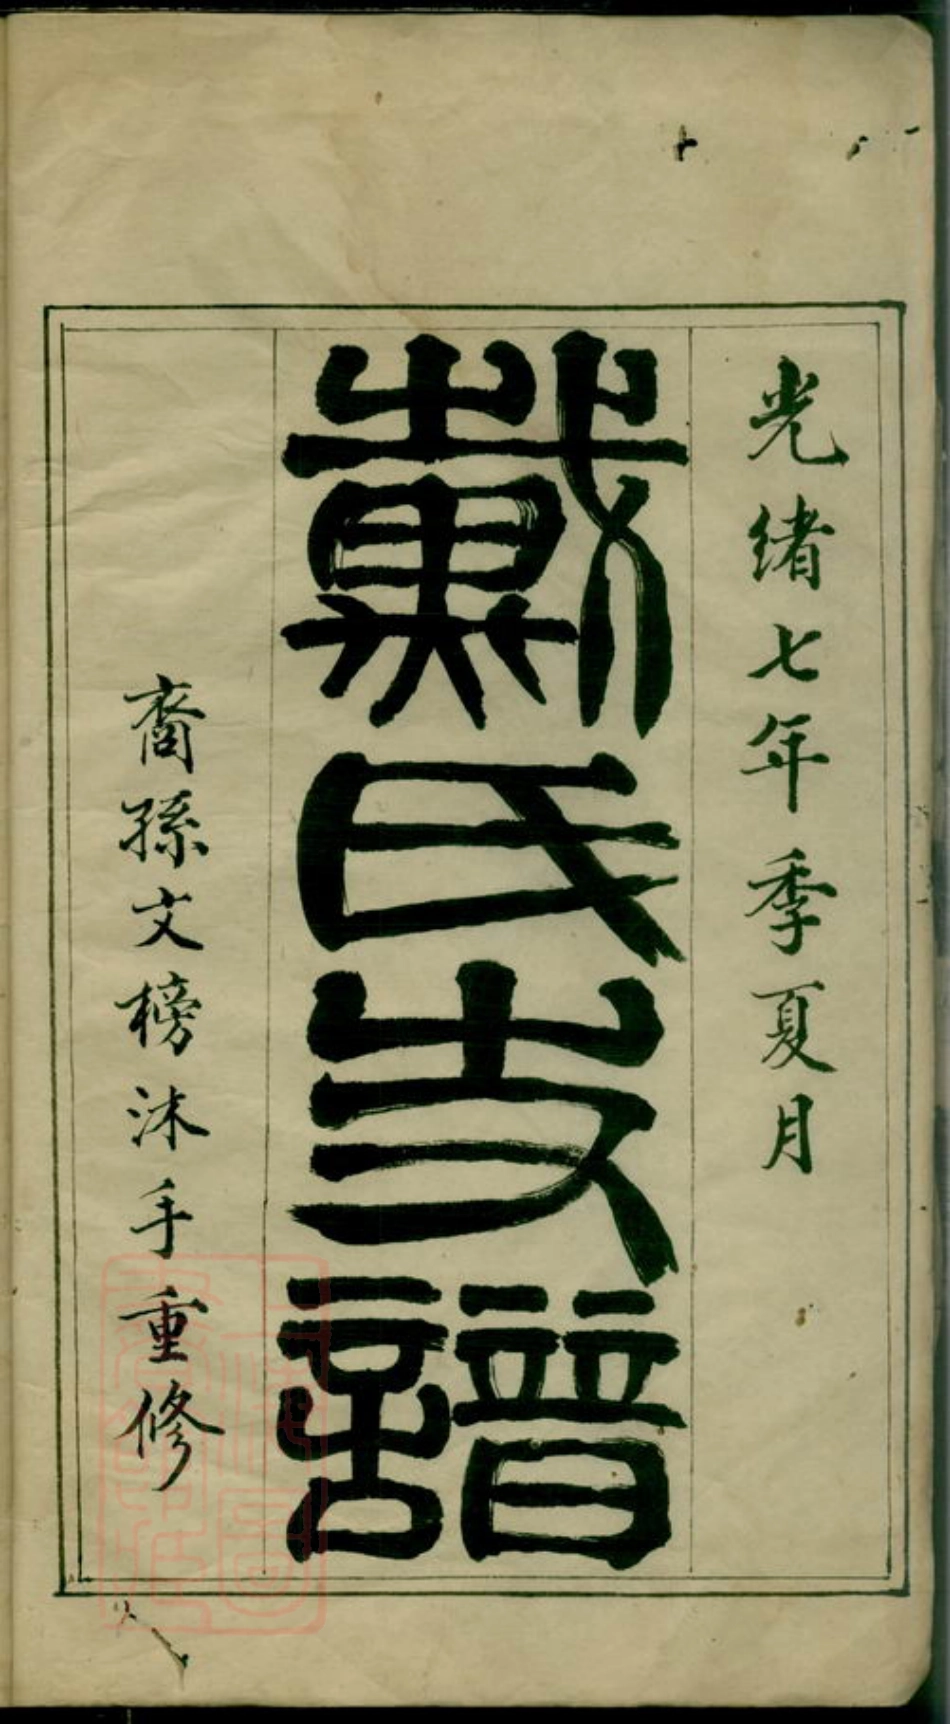 光緒七年季夏月
戴氏支譜
裔孫文榜沐手重修